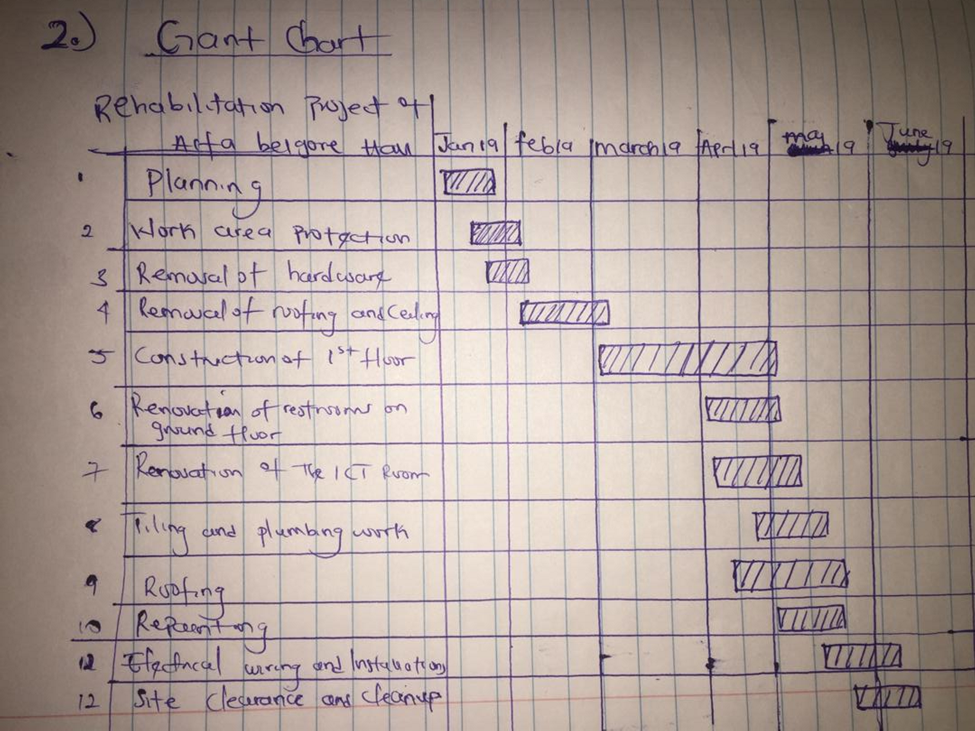 2.) Gant Chart
Rehabilitation Project of
Jan 19 feb 19 march 19 April 19 may 19 June 19
belgore Hall
1 Planning
2 Work area Protection
3 Removal of hardware
4 Removal of roofing and Ceiling
5 Construction of 1st floor
6 Renovation of restrooms on
ground floor
7 Renovation of The ICT Room
8 Tiling and plumbing work
9 Roofing
10 Repainting
Electrical wiring and Installation
12 Site Clearance and cleanup